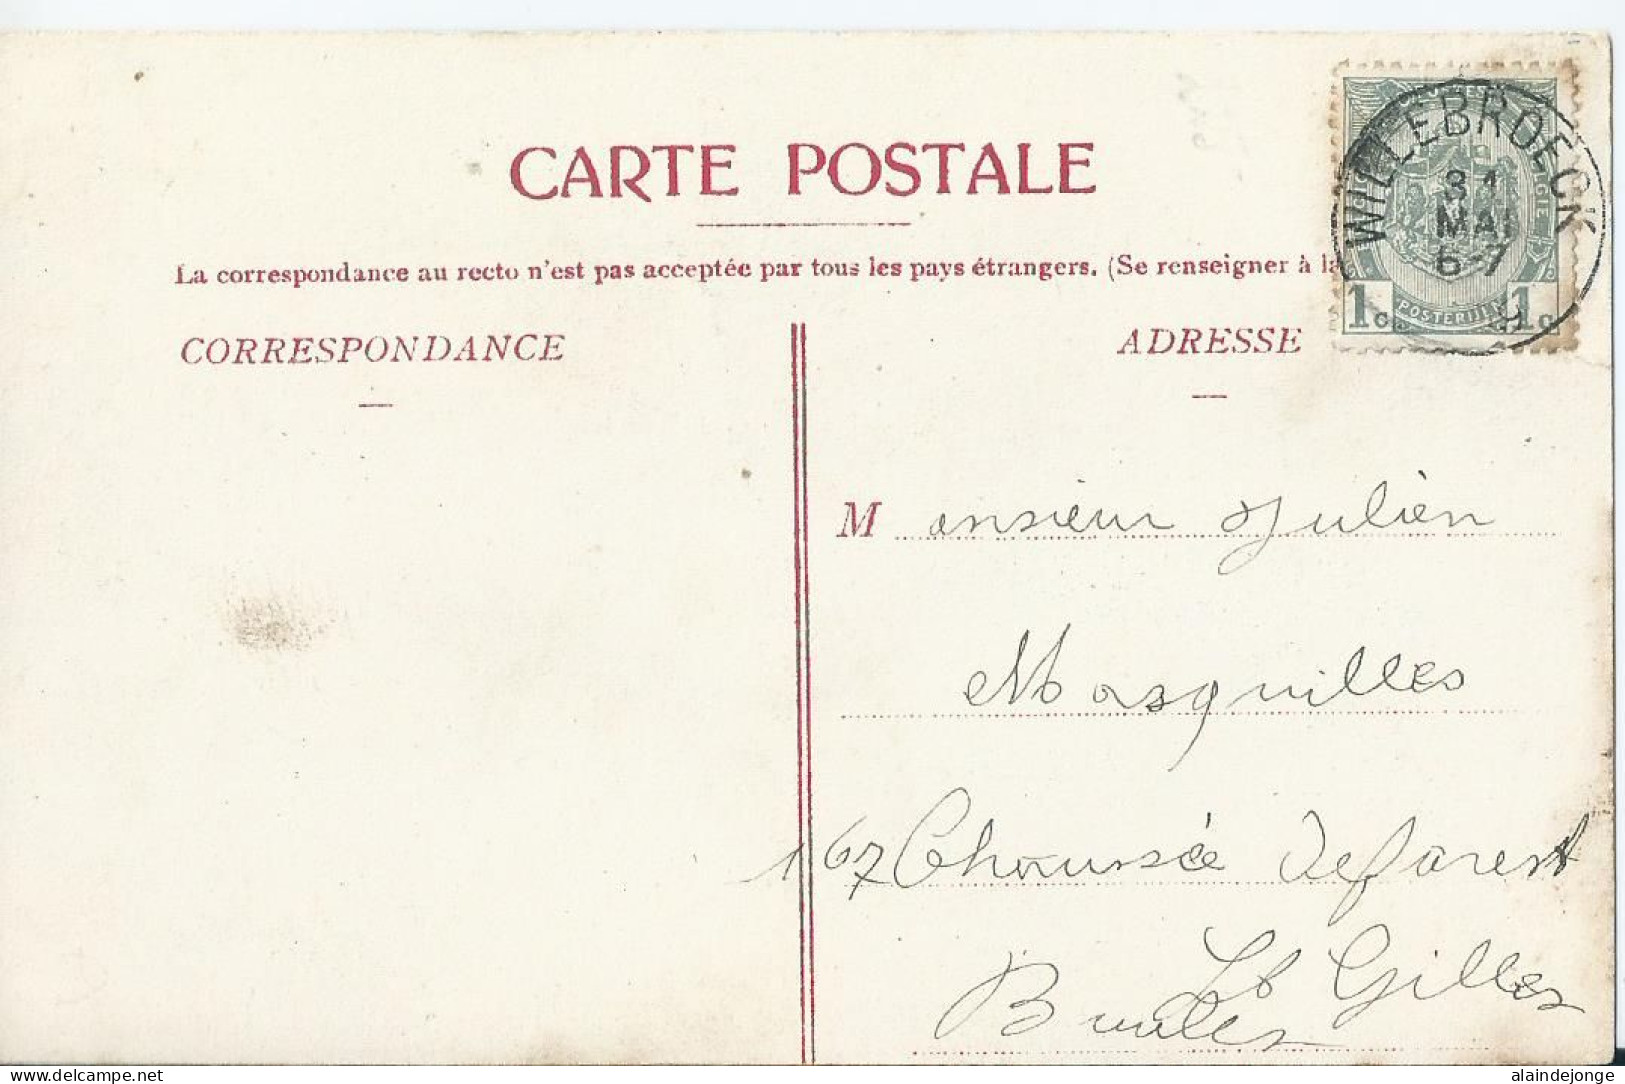 CARTE POSTALE
La correspondance au recto n'est pas acceptée par tous les pays étrangers. (Se renseigner à la
CORRESPONDANCE
ADRESSE
WILLEBROECK
31
MAI
6-7
9
POSTERIJEN
1c 1c
Monsieur Julien
Masquilles
167 Chaussée de forest
St Gilles
Bruxelles
delcampe.net
alaindejonge